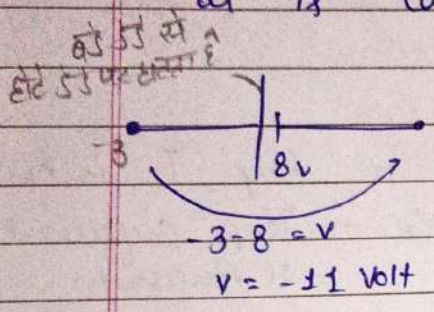 बडे डंडे से
छोटे डंडे पर घटता है
-3
8v
-3-8 = v
v = -11 volt